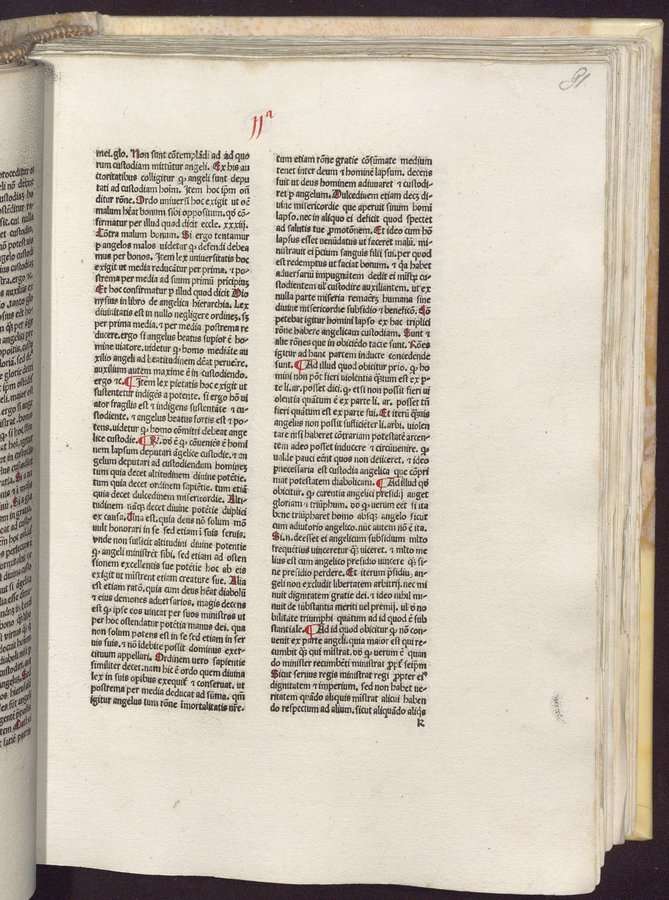 91
IIª
mei. glo. Non sunt cōtemplādi ad ad quo
rum custodiam mittūtur angeli. Ex his au
ctoritatibus colligitur ꝙ angeli sunt depu
tati ad custodiam hoim. Item hoc ipm oñ
ditur rōne. Ordo universi hoc exigit ut oē
malum hēat bonum sibi oppositum. qd̄ cō-
firmatur per illud quod dicit eccle. xxxiij.
Cōtra malum bonum. Si ergo tentamur
p angelos malos uidetur ꝙ defendi debea
mus per bonos. Item lex uniuersitatis hoc
exigit ut media reducātur per prima. ⁊ po-
strema per media ad suum primū pricipiuꝫ
Et hoc confirmatur p illud quod dicit Dio
nysius in libro de angelica hierarchia. Lex
diuinitatis est in nullo negligere ordines. sꝫ
per prima media. ⁊ per media postrema re
ducere. ergo si angelus beatus supior ē ho-
mine uiatore. uidetur ꝙ homo mediāte au
xilio angeli ad beatitudinem dēat peruēire.
auxilium autem maxime ē in custodiendo.
ergo ⁊c. ¶ Item lex pietatis hoc exigit ut
sustentetur indigēs a potente. si ergo hō ui
ator fragilis est ⁊ indigens sustentāte ⁊ cu-
stodiente. ⁊ angelus beatus fortis est ⁊ po-
tens. uidetur ꝙ homo cōmitti debeat ange
lice custodie. ¶ R. dd̄ ē ꝙ cōueniēs ē homi
nem lapsum deputari āgelice custodie. ⁊ an
gelum deputari ad custodiendam homineꝫ
tum quia decet altitudinem diuine potētie.
tum quia decet ordinem sapiētie. tum etiā
quia decet dulcedinem misericordie. Alti-
tudinem nāqꝫ decet diuine potētie duplici
ex causa. Una est. quia deus nō solum mō
uult honorari in se sed etiam ī suis seruis.
unde non sufficit altitudini diuine potentie
ꝙ angeli ministrēt sibi, sed etiam ad osten
sionem excellentis sue potētie hoc ab eis
exigit ut mistrent etiam creature sue. Alia
est etiam ratō. quia cum deus hēat diabolū
⁊ eius demones aduersarios. magis decens
est ꝙ ipse eos uincat per suos ministros ut
per hoc ostendatur potētia manus dei. qua
non solum potens est in se sed etiam in ser
uis suis. ⁊ nō idebite possit dominus exer-
cituum appellari. Ordinem uero sapientie
similiter decet. nam hic ē ordo quem diuina
lex in suis opibus exequit̄ ⁊ conseruat. ut
postrema per media deducat ad suma. qm̄
igitur angelus tum rōne īmortalitatis nr̄e-
tum etiam rōne gratie cōsumate medium
tenet inter deum ⁊ hominē lapsum. decens
fuit ut deus hominem adiuuaret ⁊ custodi-
ret p angelum. Dulcedinem etiam decꝫ di-
uine misericordie que aperuit sinum homi
lapso. nec in aliquo ei deficit quod spectet
ad salutis tue pmotōnem. Et ideo cum hō
lapsus esset uenūdatus ut faceret malū. mi-
nistrauit ei pcium sanguis filii sui. per quod
est redemptus ut faciat bonum. ⁊ qa habet
aduersariū impugnatem dedit ei mistꝝ cu-
stodientem ul custodire auxiliantem. ut ex
nulla parte miseria remaneꝫ humana sine
diuine misericordie subsidio ⁊ beneficō. Cō
petebat igitur homini lapso ex hac triplici
rōne habere angelicam custodiam. Sunt ⁊
alie rōnes que in obiciēdo tacte sunt. Rōnes
igitur ad hanc partem inducte concedende
sunt. ¶ Ad illud quod obicitur prio. ꝙ ho
mini non pōt fieri uiolentia qntum est ex p-
te li. ar. posset dici. ꝙ etsi non possit fieri ui
olentia quātum ē ex parte li. ar. posset tn̄
fieri quātum est ex parte sui. Et iterū quis
angelus non possit sufficiēter li. arbi. violen
tare nisi haberet cōtrariam potestatē arcen-
tem adeo posset inducere ⁊ circūuenire. ꝙ
ualde pauci eēnt quos non deiiceret. ⁊ ideo
pnecessaria est custodia angelica que cōpri
mat potestatem diabolicam. ¶ Ad illud qd̄
obicitur. ꝙ carentia angelici presidij auget
gloriam ⁊ triūphum. dd̄ ꝙ uerum eēt si ita
bene triūpharet homo absqꝫ angelo sicut
cum adiutorio angelico. nūc autem nō ē ita.
Si. n. deesset ei angelicum subsidium mlto
frequētius uinceretur qꝫ uiceret. ⁊ mlto me
lius est cum angelico presidio uincere qꝫ si-
ne presidio perdere. Et iterum psidiū. an-
geli non excludit libertatem arbitrij. nec mi
nuit dignitatem gratie dei. ⁊ ideo nihil mi-
nuit de substantia meriti uel premij. ul do no
bilitate triumphi quatum ad id quod ē sub
stantiale. ¶ Ad id quod obicitur ꝙ nō con-
uenit ex parte angeli. quia maior est qui re-
cumbit qꝫ qui mistrat. dd̄ ꝙ uerum ē quan
do minister recumbēti ministrat ꝓpt̄ seipm̄
Sicut seruus regis ministrat regi propter ei⁹
dignitatem ⁊ imperium. sed non habet ue-
ritatem quādo aliquis mistrat alicui haben
do respectum ad alium. sicut aliquādo aliqs
k